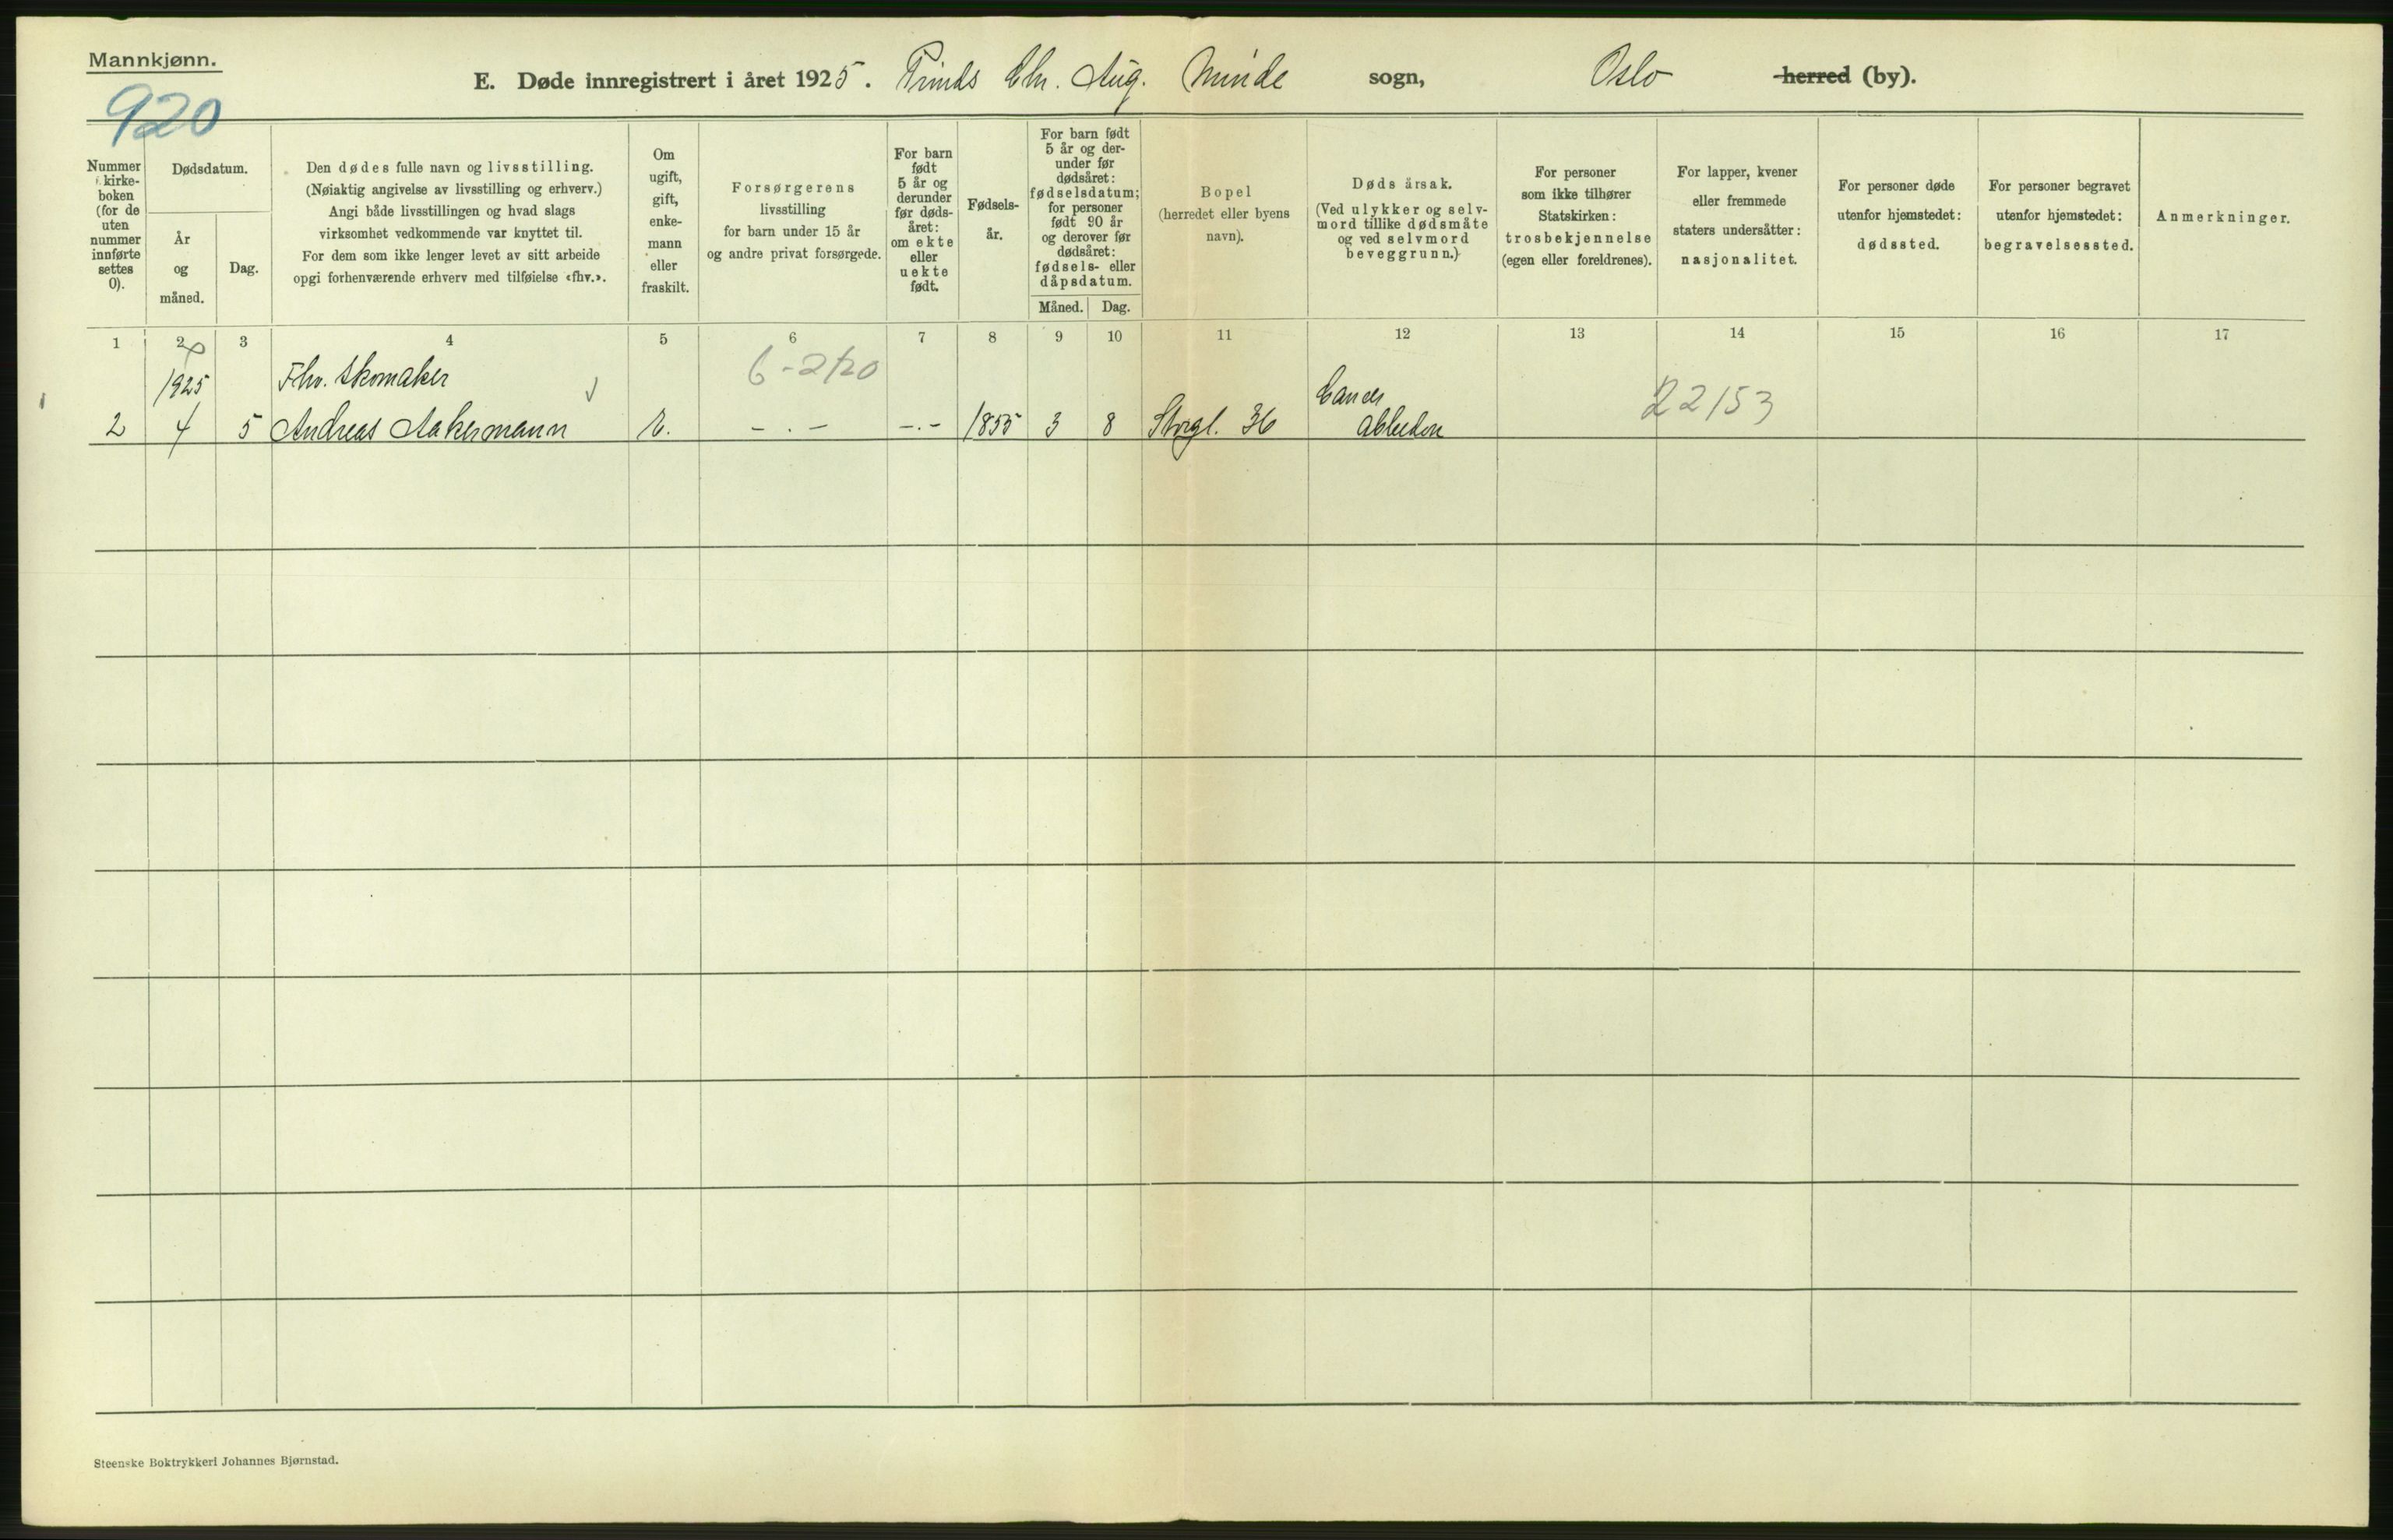 Mannkjønn.
920
E. Døde innregistrert i året 1925. Prinds Chr. Aug. Minde sogn, Oslo herred (by).
Nummer i kirke-
boken
(for de
uten
nummer
innførte
settes
0).
Dødsdatum.
År
og
måned.
Dag.
Den dødes fulle navn og livsstilling.
(Nøiaktig angivelse av livsstilling og erhverv.)
Angi både livsstillingen og hvad slags
virksomhet vedkommende var knyttet til.
For dem som ikke lenger levet av sitt arbeide
opgi forhenværende erhverv med tilføielse «fhv.».
Om
ugift,
gift,
enke-
mann
eller
fraskilt.
Forsørgerens
livsstilling
for barn under 15 år
og andre privat forsørgede.
For barn
født
5 år og
derunder
før døds-
året:
om ekte
eller
uekte
født.
Fødsels-
år.
For barn født
5 år og der-
under før
dødsåret:
fødselsdatum;
for personer
født 90 år
og derover før
dødsåret:
fødsels- eller
dåpsdatum.
Måned. Dag.
Bopel
(herredet eller byens
navn).
Dødsårsak.
(Ved ulykker og selv-
mord tillike dødsmåte
og ved selvmord
beveggrunn.)
For personer
som ikke tilhører
Statskirken:
trosbekjennelse
(egen eller foreldrenes).
For lapper, kvener
eller fremmede
staters undersåtter:
nasjonalitet.
For personer døde
utenfor hjemstedet:
dødssted.
For personer begravet
utenfor hjemstedet:
begravelsessted.
Anmerkninger.
1 2 3 4 5 6 7 8 9 10 11 12 13 14 15 16 17
1925 Fhv. Skomaker 6-2/20 Cancer 22153
2 4 5 Andreas Aakermann - . - - . - 1855 3 8 Storgt. 36
Steenske Boktrykkeri Johannes Bjørnstad.